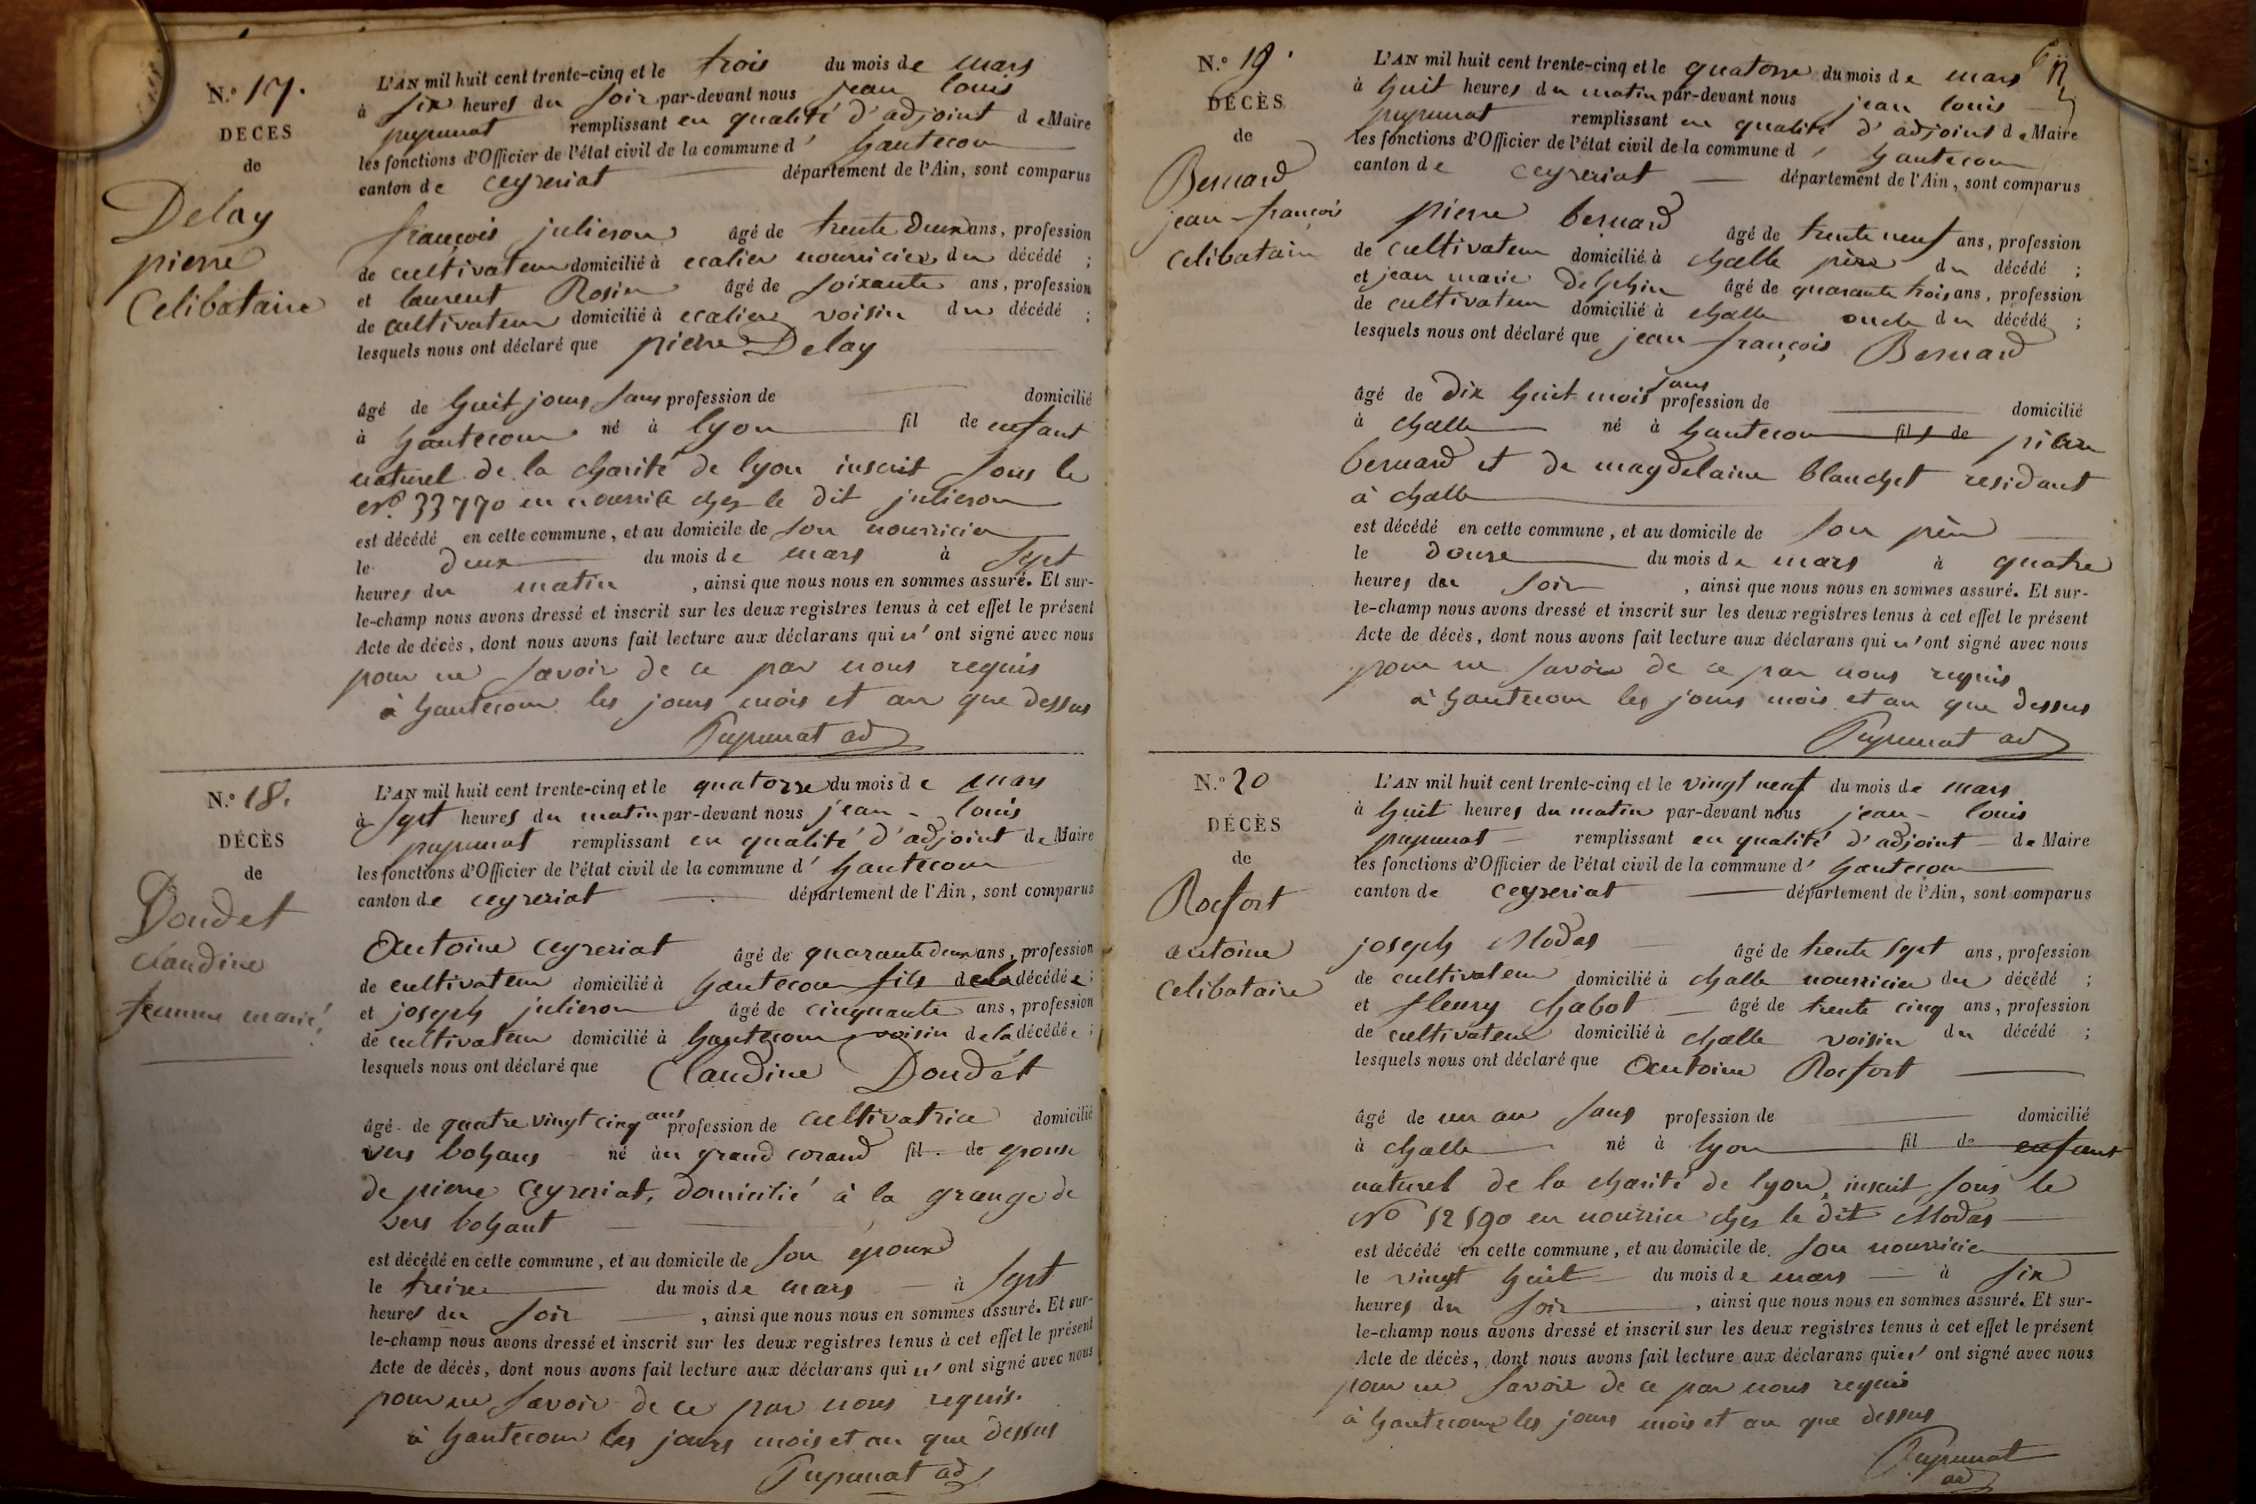 N.º 17.
DÉCÈS
de
Delay
pierre
Celibataire
L'AN mil huit cent trente-cinq et le trois du mois de mars
à six heures du soir par-devant nous jean louis
pupunat remplissant en qualité d'adjoint de Maire
les fonctions d'Officier de l'état civil de la commune d' hautecour
canton de ceyzeriat département de l'Ain, sont comparus
françois julieron âgé de trente deux ans, profession
de cultivateur domicilié à ecalier nourricier du décédé ;
et laurent Rosier âgé de soixante ans, profession
de cultivateur domicilié à ecalier voisin du décédé ;
lesquels nous ont déclaré que pierre Delay
âgé de huit jours sans profession de domicilié
à hautecour né à lyon fil de enfant
naturel de la charité de lyon inscrit sous le
Nº 33770 en nourrice chez le dit julieron
est décédé en cette commune, et au domicile de son nourricier
le deux du mois de mars à sept
heures du matin, ainsi que nous nous en sommes assuré. Et sur-
le-champ nous avons dressé et inscrit sur les deux registres tenus à cet effet le présent
Acte de décès, dont nous avons fait lecture aux déclarans qui n'ont signé avec nous
pour ne savoir de ce par nous requis
à hautecour les jours mois et an que dessus
Pupunat ad
N.º 18.
DÉCÈS
de
Doudet
claudine
femme marié
L'AN mil huit cent trente-cinq et le quatorze du mois de mars
à sept heures du matin par-devant nous jean - louis
pupunat remplissant en qualité d'adjoint de Maire
les fonctions d'Officier de l'état civil de la commune d' hautecour
canton de ceyzeriat département de l'Ain, sont comparus
Antoine ceyzeriat âgé de quarante deux ans, profession
de cultivateur domicilié à hautecour fils de la décédée ;
et joseph julieron âgé de cinquante ans, profession
de cultivateur domicilié à hautecour voisin de la décédée ;
lesquels nous ont déclaré que Claudine Doudet
âgé de quatre vingt cinq ans profession de cultivatrice domicilié
vers bohans né au grand corand fil de epouse
de pierre Ceyzeriat, domicilié à la grange de
vers bohant
est décédé en cette commune, et au domicile de son epoux
le treize du mois de mars à sept
heures du soir, ainsi que nous nous en sommes assuré. Et sur-
le-champ nous avons dressé et inscrit sur les deux registres tenus à cet effet le présent
Acte de décès, dont nous avons fait lecture aux déclarans qui n'ont signé avec nous
pour ne savoir de ce par nous requis.
à hautecour les jours mois et an que dessus
Pupunat ad
N.º 19.
DÉCÈS
de
Bernard
jean-françois
celibatair
L'AN mil huit cent trente-cinq et le quatorze du mois de mars
à huit heures du matin par-devant nous jean louis
pupunat remplissant en qualité d'adjoint de Maire
les fonctions d'Officier de l'état civil de la commune d' hautecour
canton de ceyzeriat département de l'Ain, sont comparus
pierre bernard âgé de trente neuf ans, profession
de cultivateur domicilié à challe père du décédé ;
et jean marie Delphin âgé de quarante trois ans, profession
de cultivateur domicilié à challe oncle du décédé ;
lesquels nous ont déclaré que jean françois Bernard
âgé de dix huit mois sans profession de domicilié
à challe né à hautecour fils de pierre
bernard et de magdelaine blanchet residant
à challe
est décédé en cette commune, et au domicile de son père
le douze du mois de mars à quatre
heures du soir, ainsi que nous nous en sommes assuré. Et sur-
le-champ nous avons dressé et inscrit sur les deux registres tenus à cet effet le présent
Acte de décès, dont nous avons fait lecture aux déclarans qui n'ont signé avec nous
pour ne savoir de ce par nous requis
à hautecour les jours mois et an que dessus
Pupunat ad
N.º 20
DÉCÈS
de
Rocfort
antoine
celibataire
L'AN mil huit cent trente-cinq et le vingt neuf du mois de mars
à huit heures du matin par-devant nous jean - louis
pupunat remplissant en qualité d'adjoint de Maire
les fonctions d'Officier de l'état civil de la commune d' hautecour
canton de ceyzeriat département de l'Ain, sont comparus
joseph Modas âgé de trente sept ans, profession
de cultivateur domicilié à challe nourricier du décédé ;
et fleury chabot âgé de trente cinq ans, profession
de cultivateur domicilié à challe voisin du décédé ;
lesquels nous ont déclaré que Antoine Rocfort
âgé de un an sans profession de domicilié
à challe né à lyon fil de enfant
naturel de la charité de lyon, inscrit sous le
Nº 32590 en nourrice chez le dit Modas
est décédé en cette commune, et au domicile de son nourricier
le vingt huit du mois de mars à six
heures du soir, ainsi que nous nous en sommes assuré. Et sur-
le-champ nous avons dressé et inscrit sur les deux registres tenus à cet effet le présent
Acte de décès, dont nous avons fait lecture aux déclarans qui n'ont signé avec nous
pour ne savoir de ce par nous requis
à hautecour les jours mois et an que dessus
Pupunat
ad